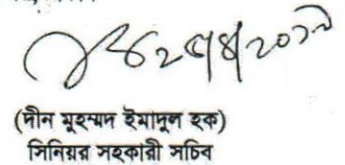 (দীন মুহম্মদ ইমাদুল হক)
সিনিয়র সহকারী সচিব